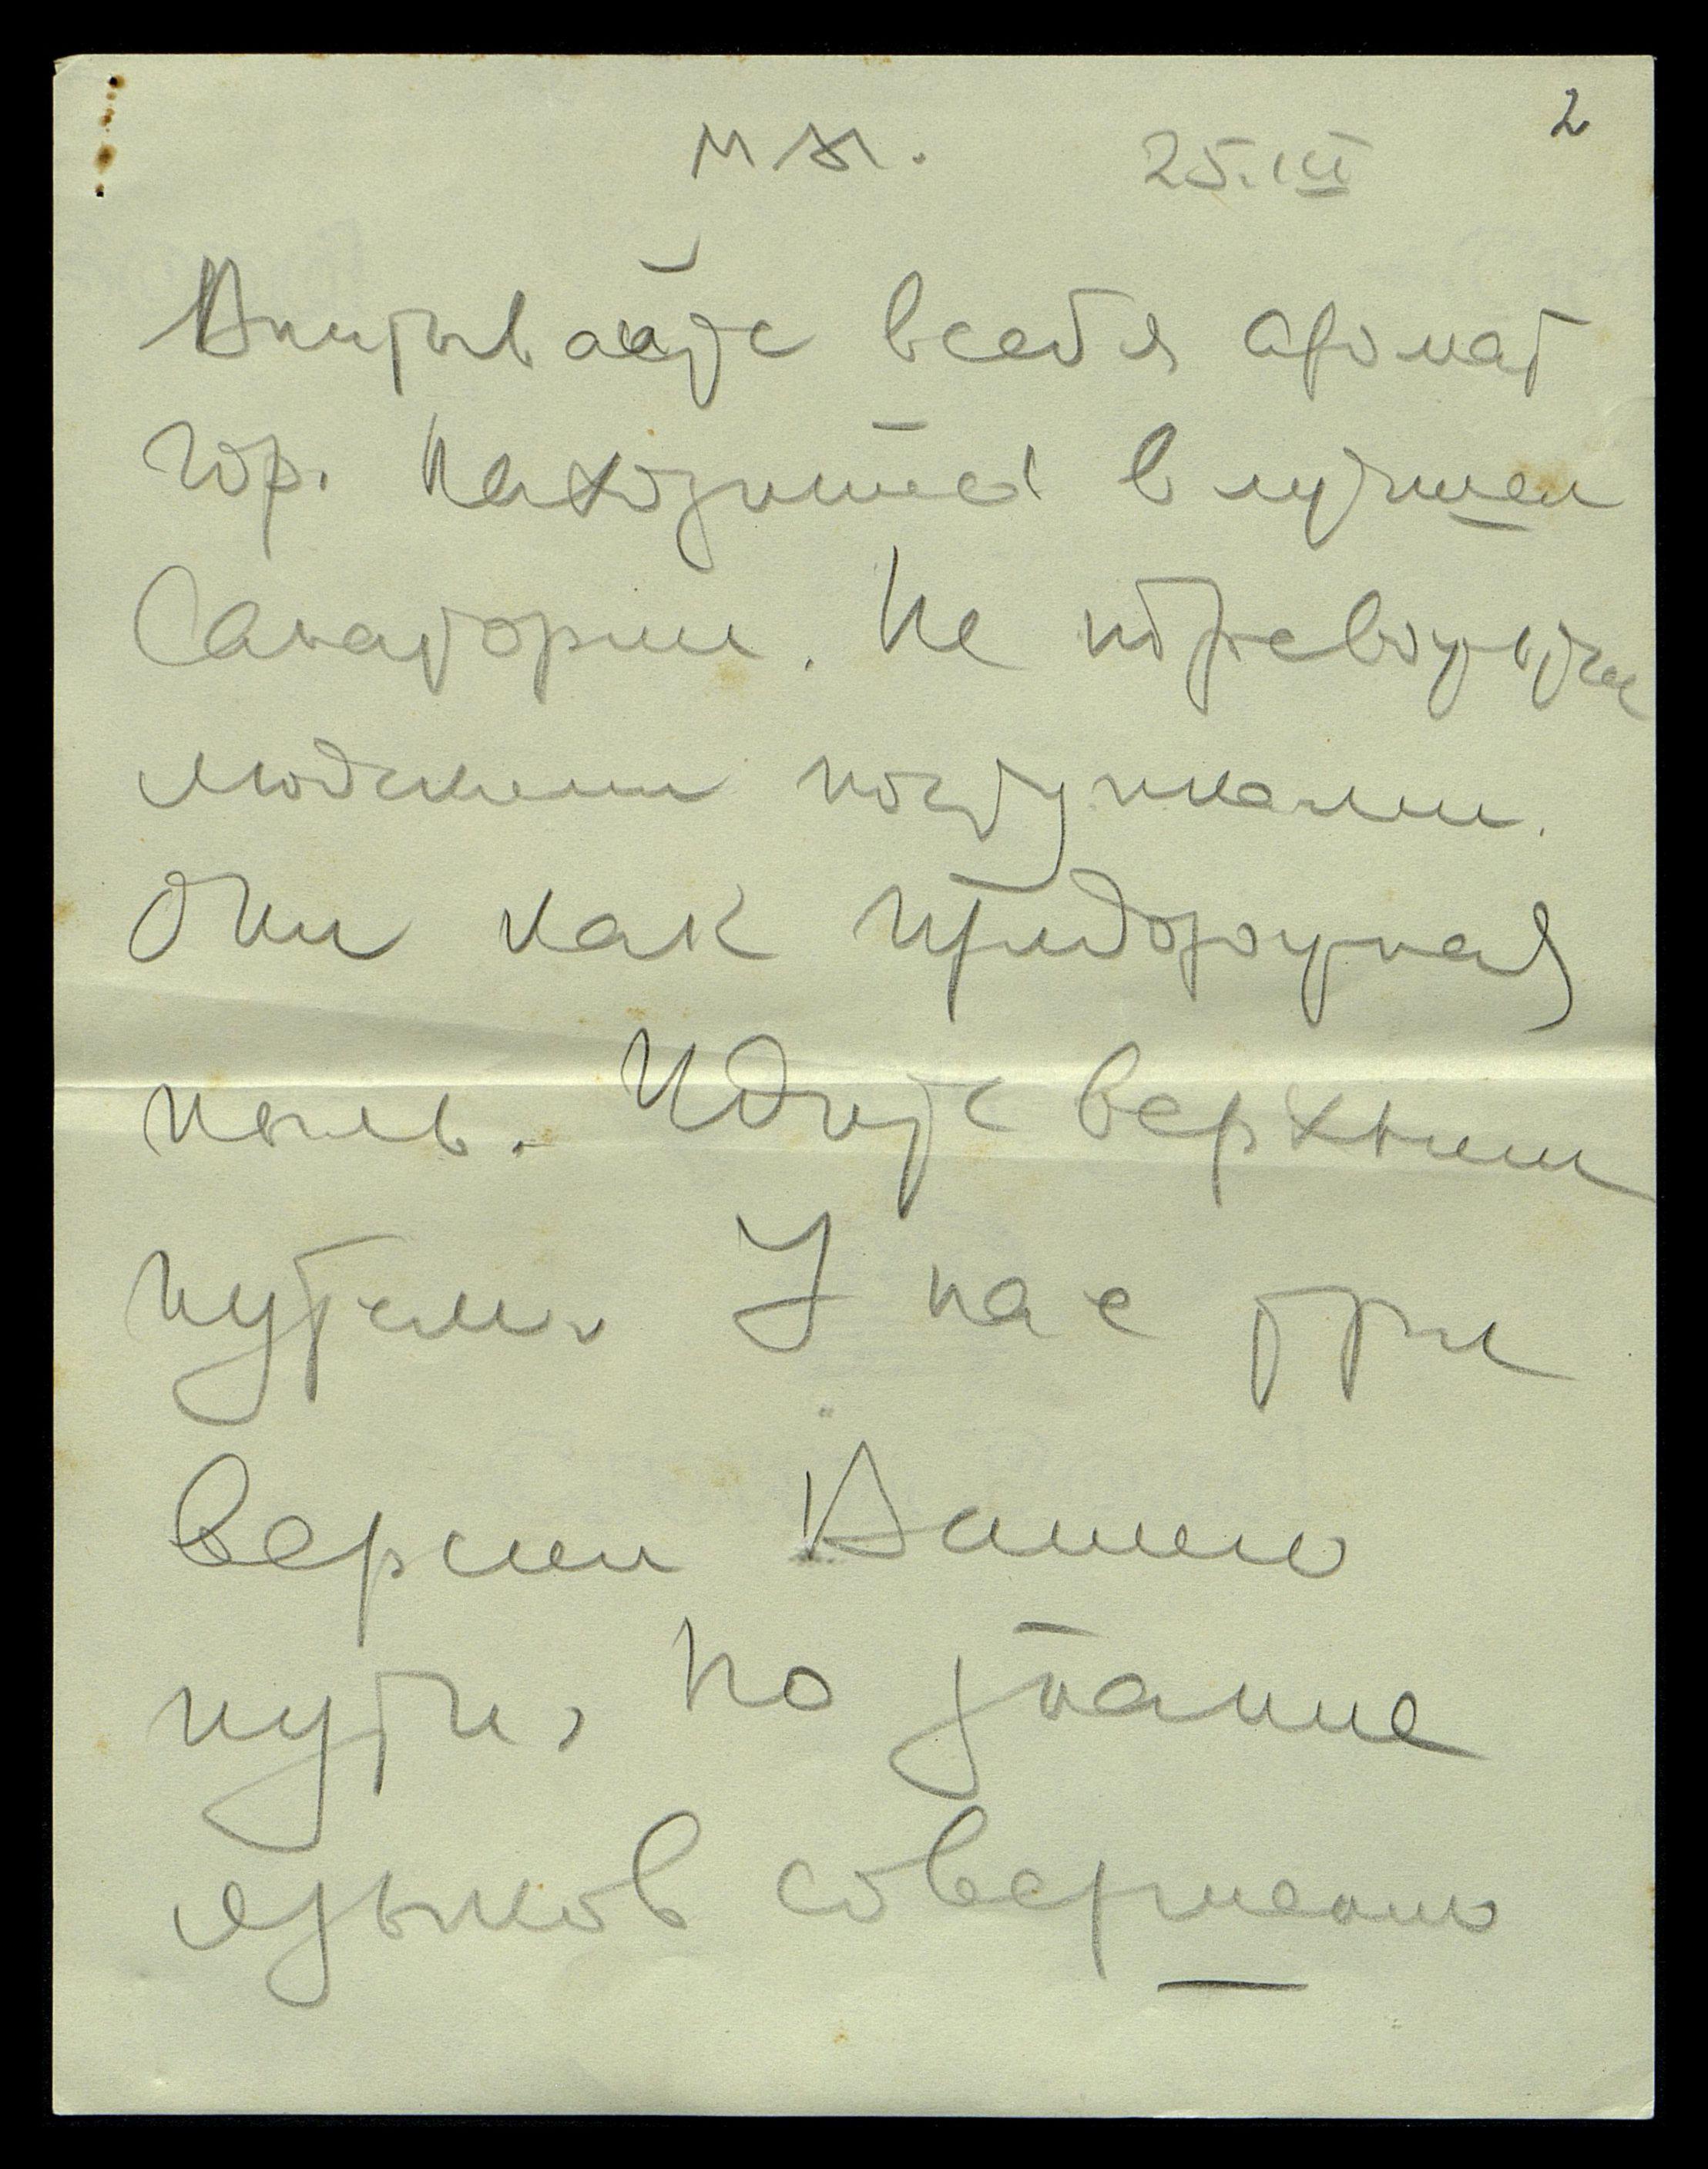 2
М. Ж. 25.III
Впитывайте в себя аромат
гор. Находитесь в лучшем
Санатории. Не
людскими поступками.
Они как придорожная
пыль. Идите верхним
путем. У нас три
версии Вашего
пути, но знание
языков совершенно